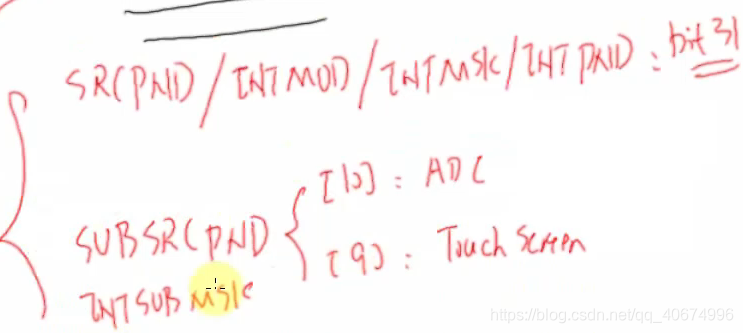 SRCPND / INTMOD / INTMSK / INTPND : bit 31
[10] : ADC
SUBSRCPND
[9] : Touch Screen
INTSUBMSK
https://blog.csdn.net/qq_40674996